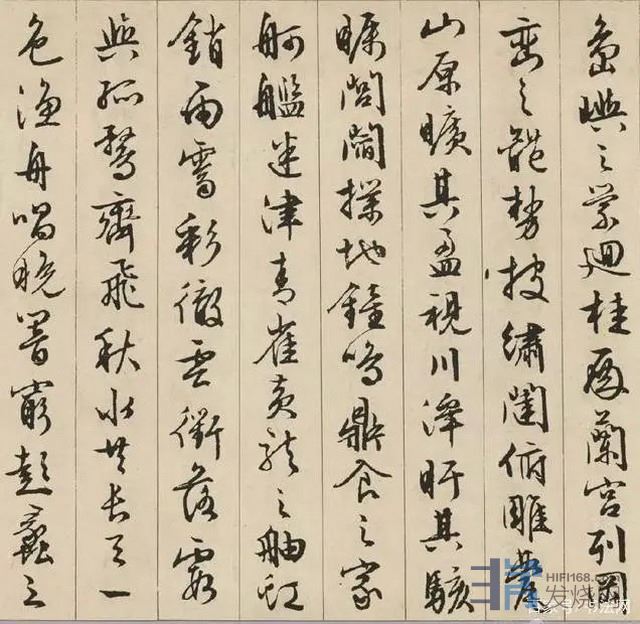 島嶼之縈迴桂殿蘭宮列岡
巒之體勢披繡闥俯雕甍
山原曠其盈視川澤盱其駭
矚閭閻撲地鐘鳴鼎食之家
舸艦迷津青雀黃龍之舳虹
銷雨霽彩徹雲衢落霞
與孤鶩齊飛秋水共長天一
色漁舟唱晚響窮彭蠡之
HIFI168.com
发烧